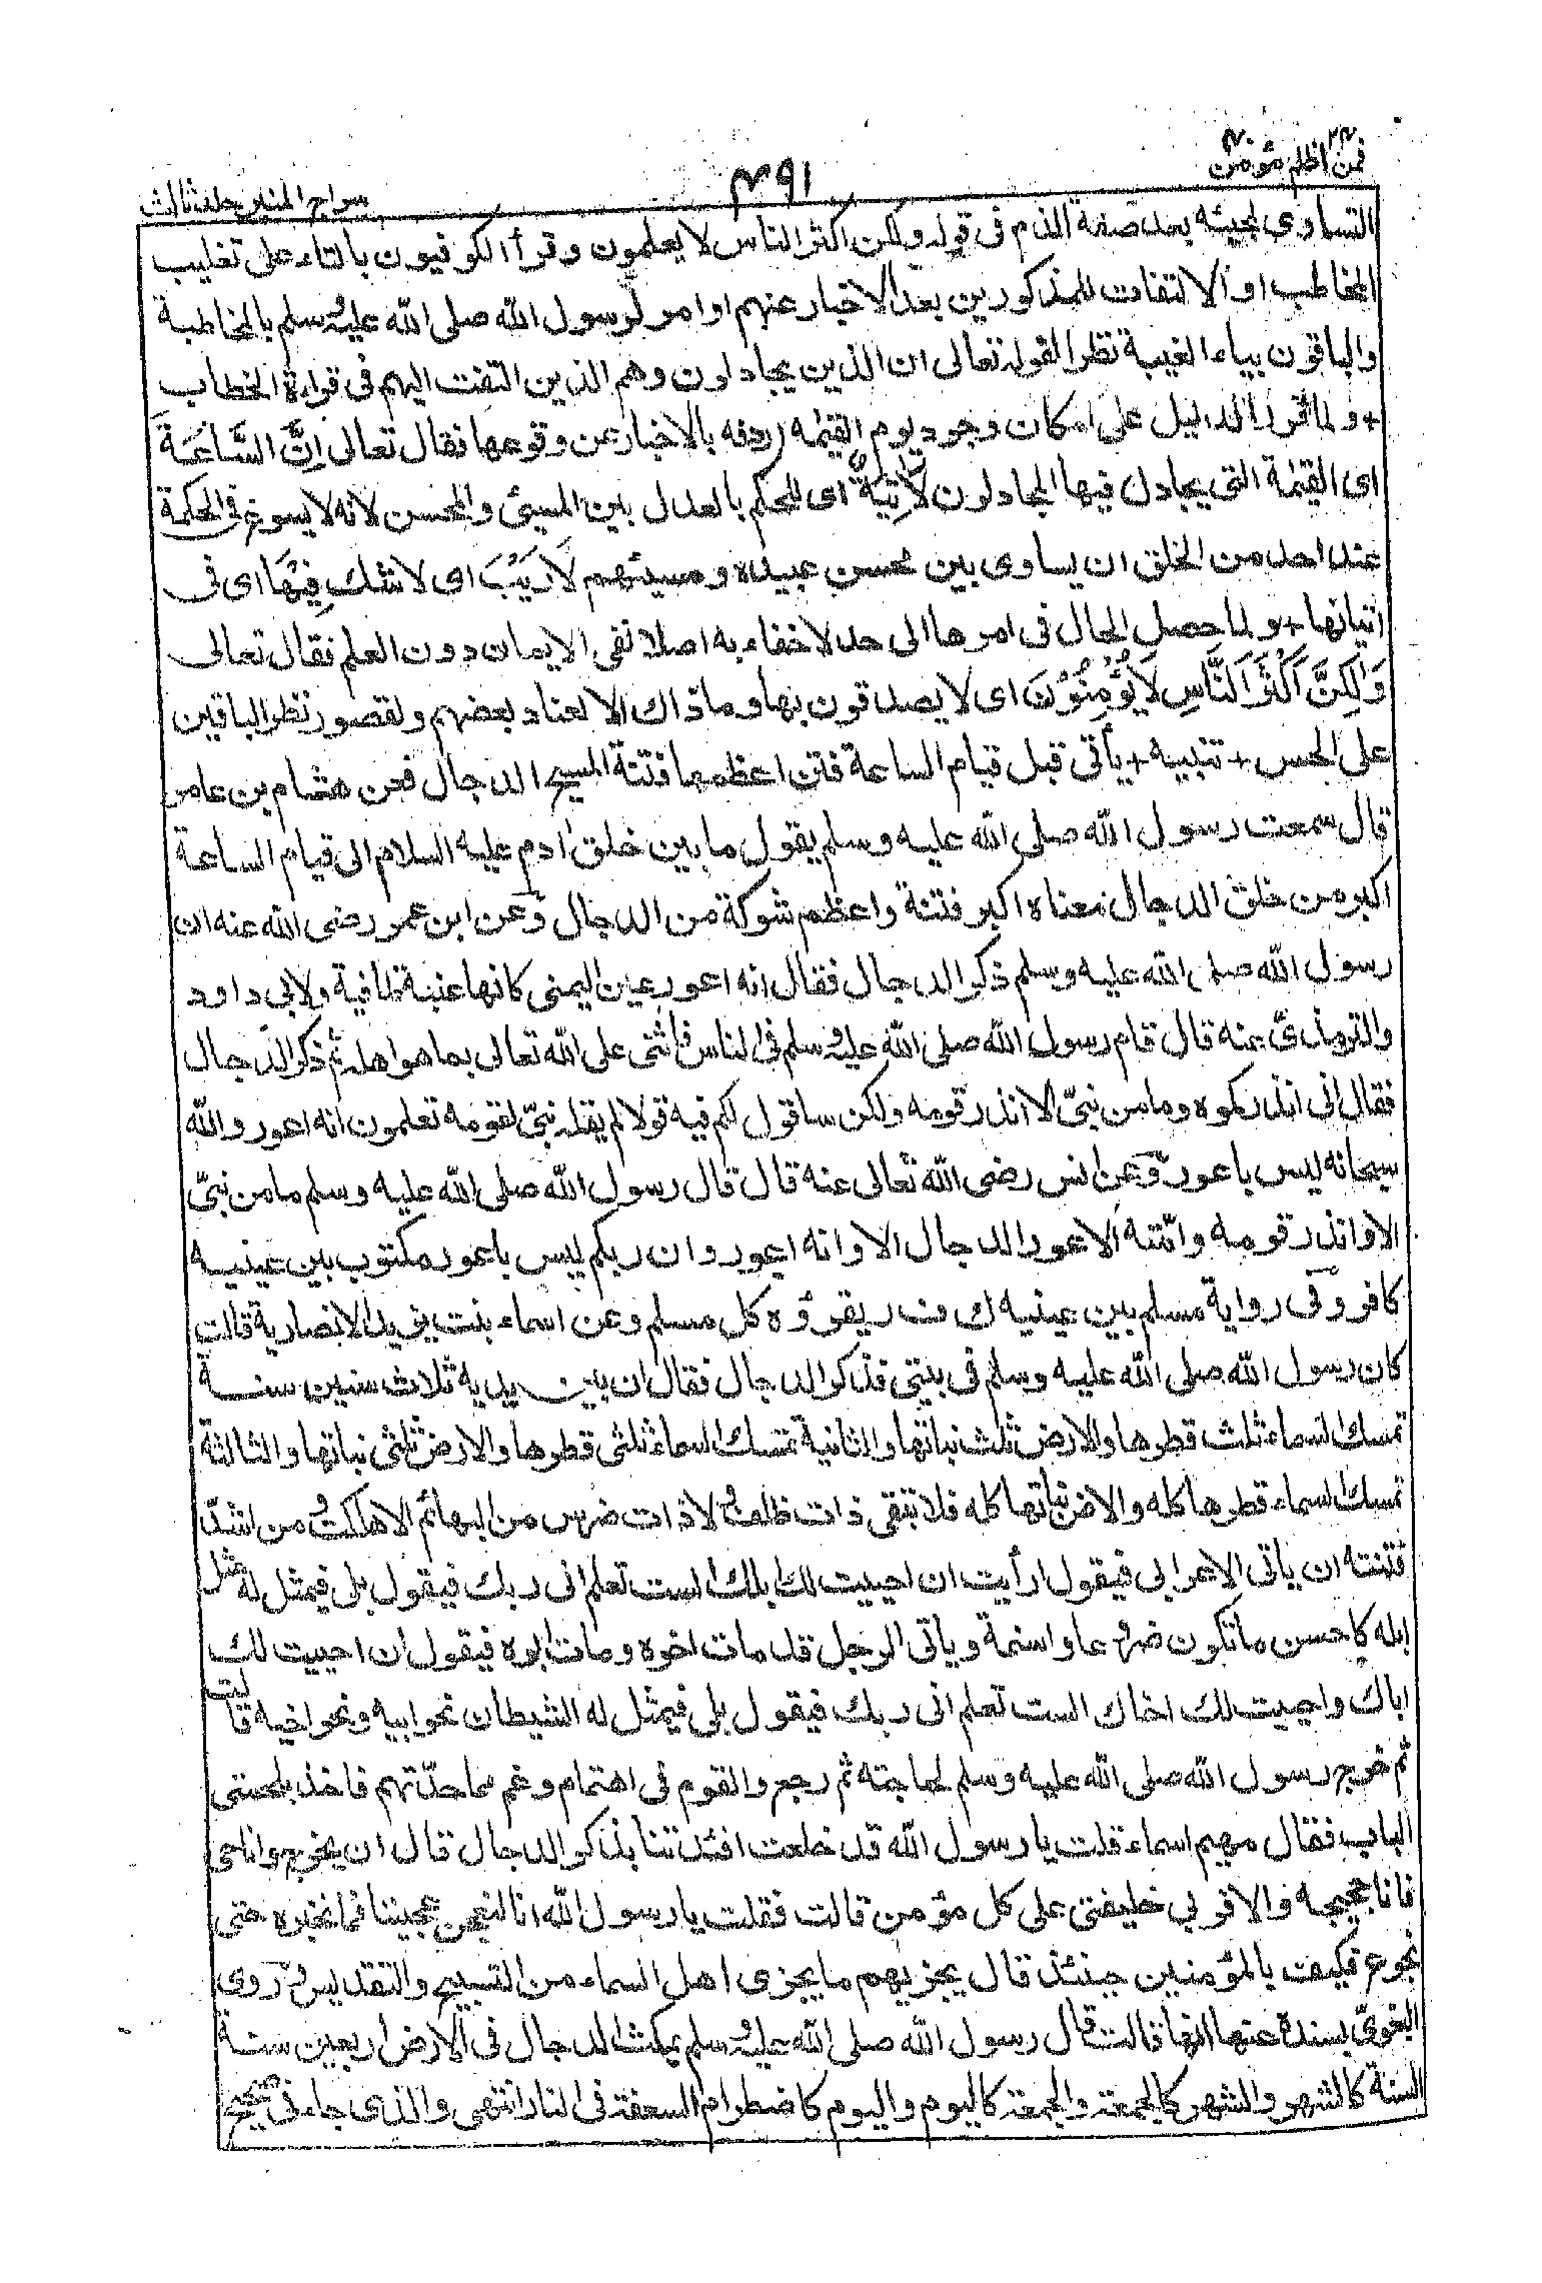 فمن اظلم ٢٤ مؤمن ٤٠
٤٩١
سراج المنير جلد ثالث
التساوى لمجيئه بعد صفة الذم فى قوله ولكن اكثر الناس لا يعلمون وقرأ الكوفيون بالتاء على تغليب
المخاطب او الالتفات للمذكورين بعد الاخبار عنهم او امر لرسول الله صلى الله عليه وسلم بالمخاطبة
والباقون بياء الغيبة نظرا لقوله تعالى ان الذين يجادلون وهم الذين التفت اليهم فى قراءة الخطاب
+ ولما قرر الدليل على امكان وجود يوم القيٰمة اردفه بالاخبار عن وقوعها فقال تعالى اِنَّ السَّاعَةَ
اى القيٰمة التى يجادل فيها المجادلون لَاٰتِيَةٌ اى للحكم بالعدل بين المسيئ والمحسن لانه لا يسوغ فى الحكمة
عند احد من الخلق ان يساوى بين محسن عبيده ومسيئهم لَا رَيْبَ اى لا شك فِيْهَا اى فى
اتيانها + ولما حصل الحال فى امرها الى حد لا خفاء به اصلا نفى الايمان دون العلم فقال تعالى
وَلٰكِنَّ اَكْثَرَ النَّاسِ لَا يُؤْمِنُوْنَ اى لا يصدقون بها وما ذاك الا لعناد بعضهم ولقصور نظر الباقين
على الحس + تنبيه + يأتى قبل قيام الساعة فتن اعظمها فتنة المسيح الدجال فعن هشام بن عامر
قال سمعت رسول الله صلى الله عليه وسلم يقول ما بين خلق اٰدم عليه السلام الى قيام الساعة
اكبر من خلق الدجال معناه اكبر فتنة واعظم شوكة من الدجال وعن ابن عمر رضى الله عنه ان
رسول الله صلى الله عليه وسلم ذكر الدجال فقال انه اعور عين اليمنى كانها عنبة طافية ولابى داود
والترمذىّ عنه قال قام رسول الله صلى الله عليه وسلم فى الناس فأثنى على الله تعالى بما هو اهله ثم ذكر الدجال
فقال انى انذركموه وما من نبىّ الا انذر قومه ولكن ساقول لكم فيه قولا لم يقله نبىّ لقومه تعلمون انه اعور والله
سبحانه ليس باعور وعن انس رضى الله تعالى عنه قال قال رسول الله صلى الله عليه وسلم ما من نبىّ
الا وانذر قومه وامّته الاعور الدجال الا وانه اعور وان ربكم ليس باعور مكتوب بين عينيه
كافر وفى رواية مسلم بين عينيه ك ف ر يقرؤه كل مسلم وعن اسماء بنت يزيد الانصارية قالت
كان رسول الله صلى الله عليه وسلم فى بيتى فذكر الدجال فقال ان بين يديه ثلاث سنين سنة
تمسك السماء ثلث قطرها والارض ثلث نباتها والثانية تمسك السماء ثلثى قطرها والارض ثلثى نباتها والثالثة
تمسك السماء قطرها كله والارض نباتها كله فلا تبقى ذات ظلف ولا ذات ضرس من البهائم الا هلكت ومن اشدّ
فتنته ان ياتى الاعرابى فيقول ارأيت ان احييت لك ابلك الست تعلم انى ربك فيقول بلى فيمثل له مثل
ابله كاحسن ما تكون ضروعا واسنمة وياتى الرجل قد مات اخوه ومات ابوه فيقول ان احييت لك
اباك واحييت لك اخاك الست تعلم انى ربك فيقول بلى فيمثل له الشيطان نحو ابيه ونحو اخيه قالت
ثم خرج رسول الله صلى الله عليه وسلم لحاجته ثم رجع والقوم فى اهتمام وغم مما حدّثهم فاخذ بلحمتى
الباب فقال مهيم اسماء قلت يا رسول الله قد خلعت افئدتنا بذكر الدجال قال ان يخرج وانا حى
فانا حجيجه والا فربى خليفتى على كل مؤمن قالت فقلت يا رسول الله انا لنعجن عجيننا فما نخبزه حتى
نجوع فكيف بالمؤمنين حينئذ قال يجزيهم ما يجزى اهل السماء من التسبيح والتقديس وروى
البغوىّ بسنده عنها ايضا قالت قال رسول الله صلى الله عليه وسلم يمكث الدجال فى الارض اربعين سنة
السنة كالشهر والشهر كالجمعة والجمعة كاليوم واليوم كاضطرام السعفة فى النار انتهى والذى جاء فى صحيح